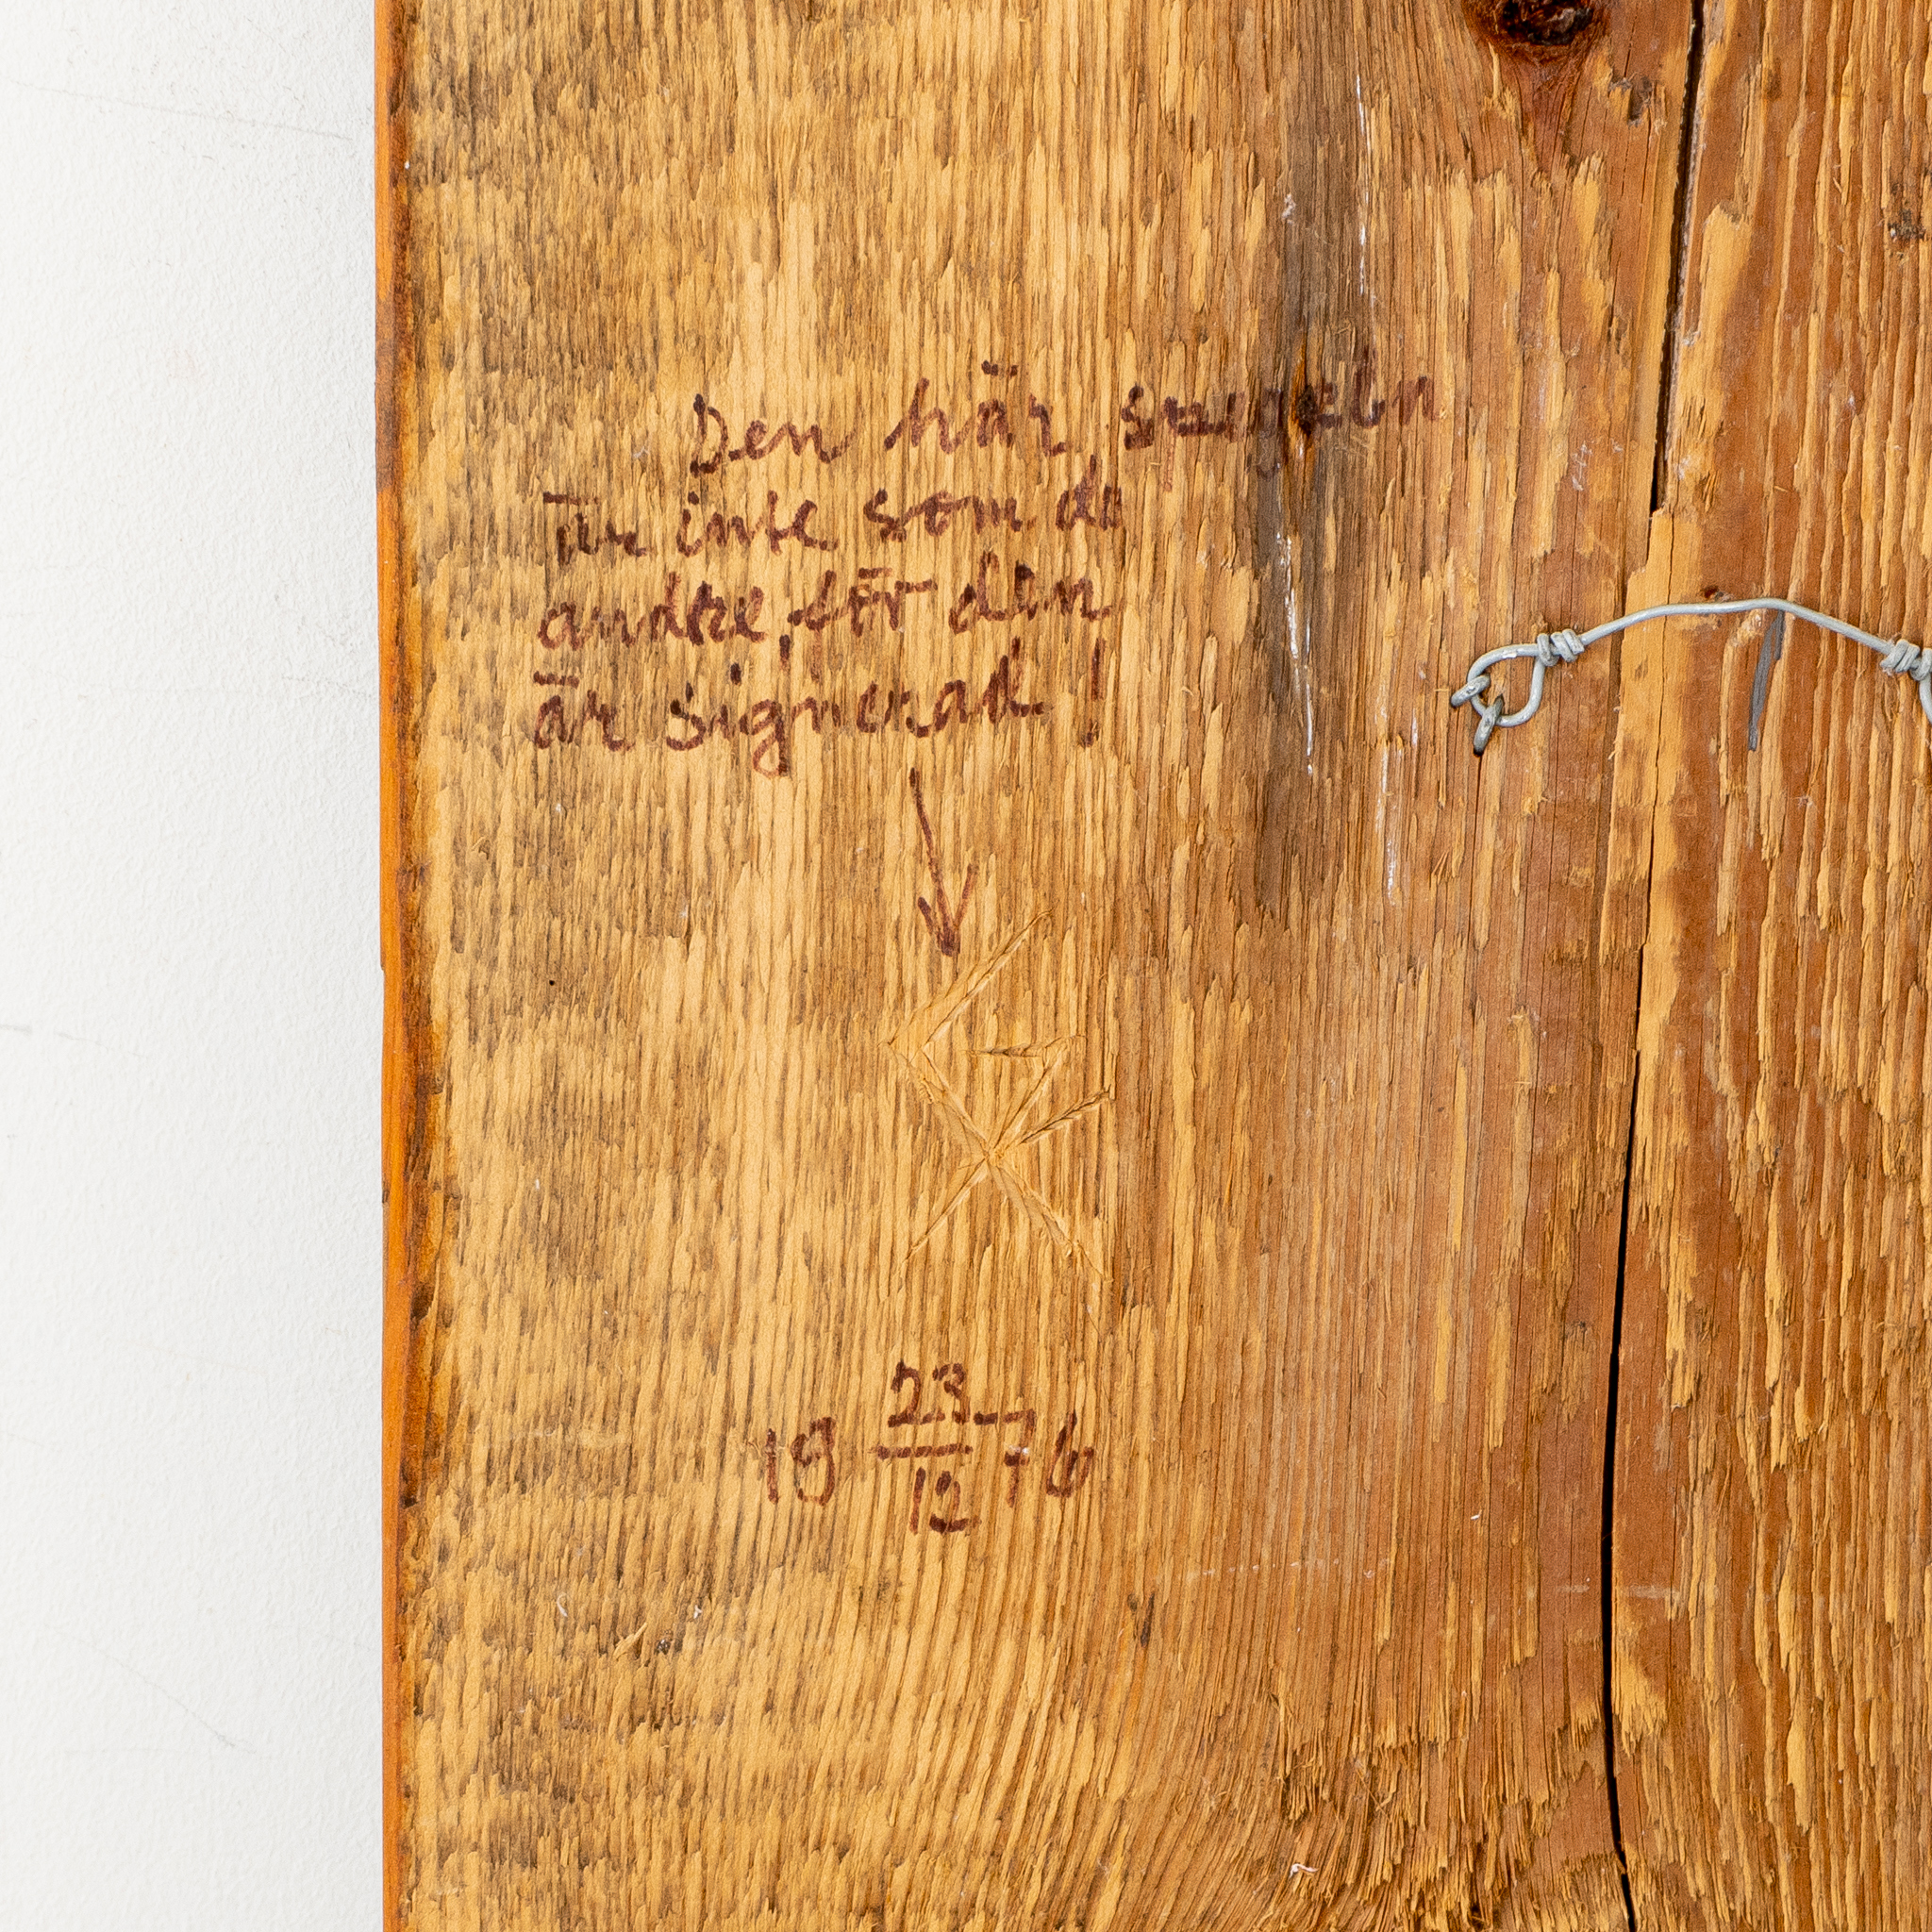 Den här spegeln
är inte som de
andre, för den
är signerad!
19 23/12 76